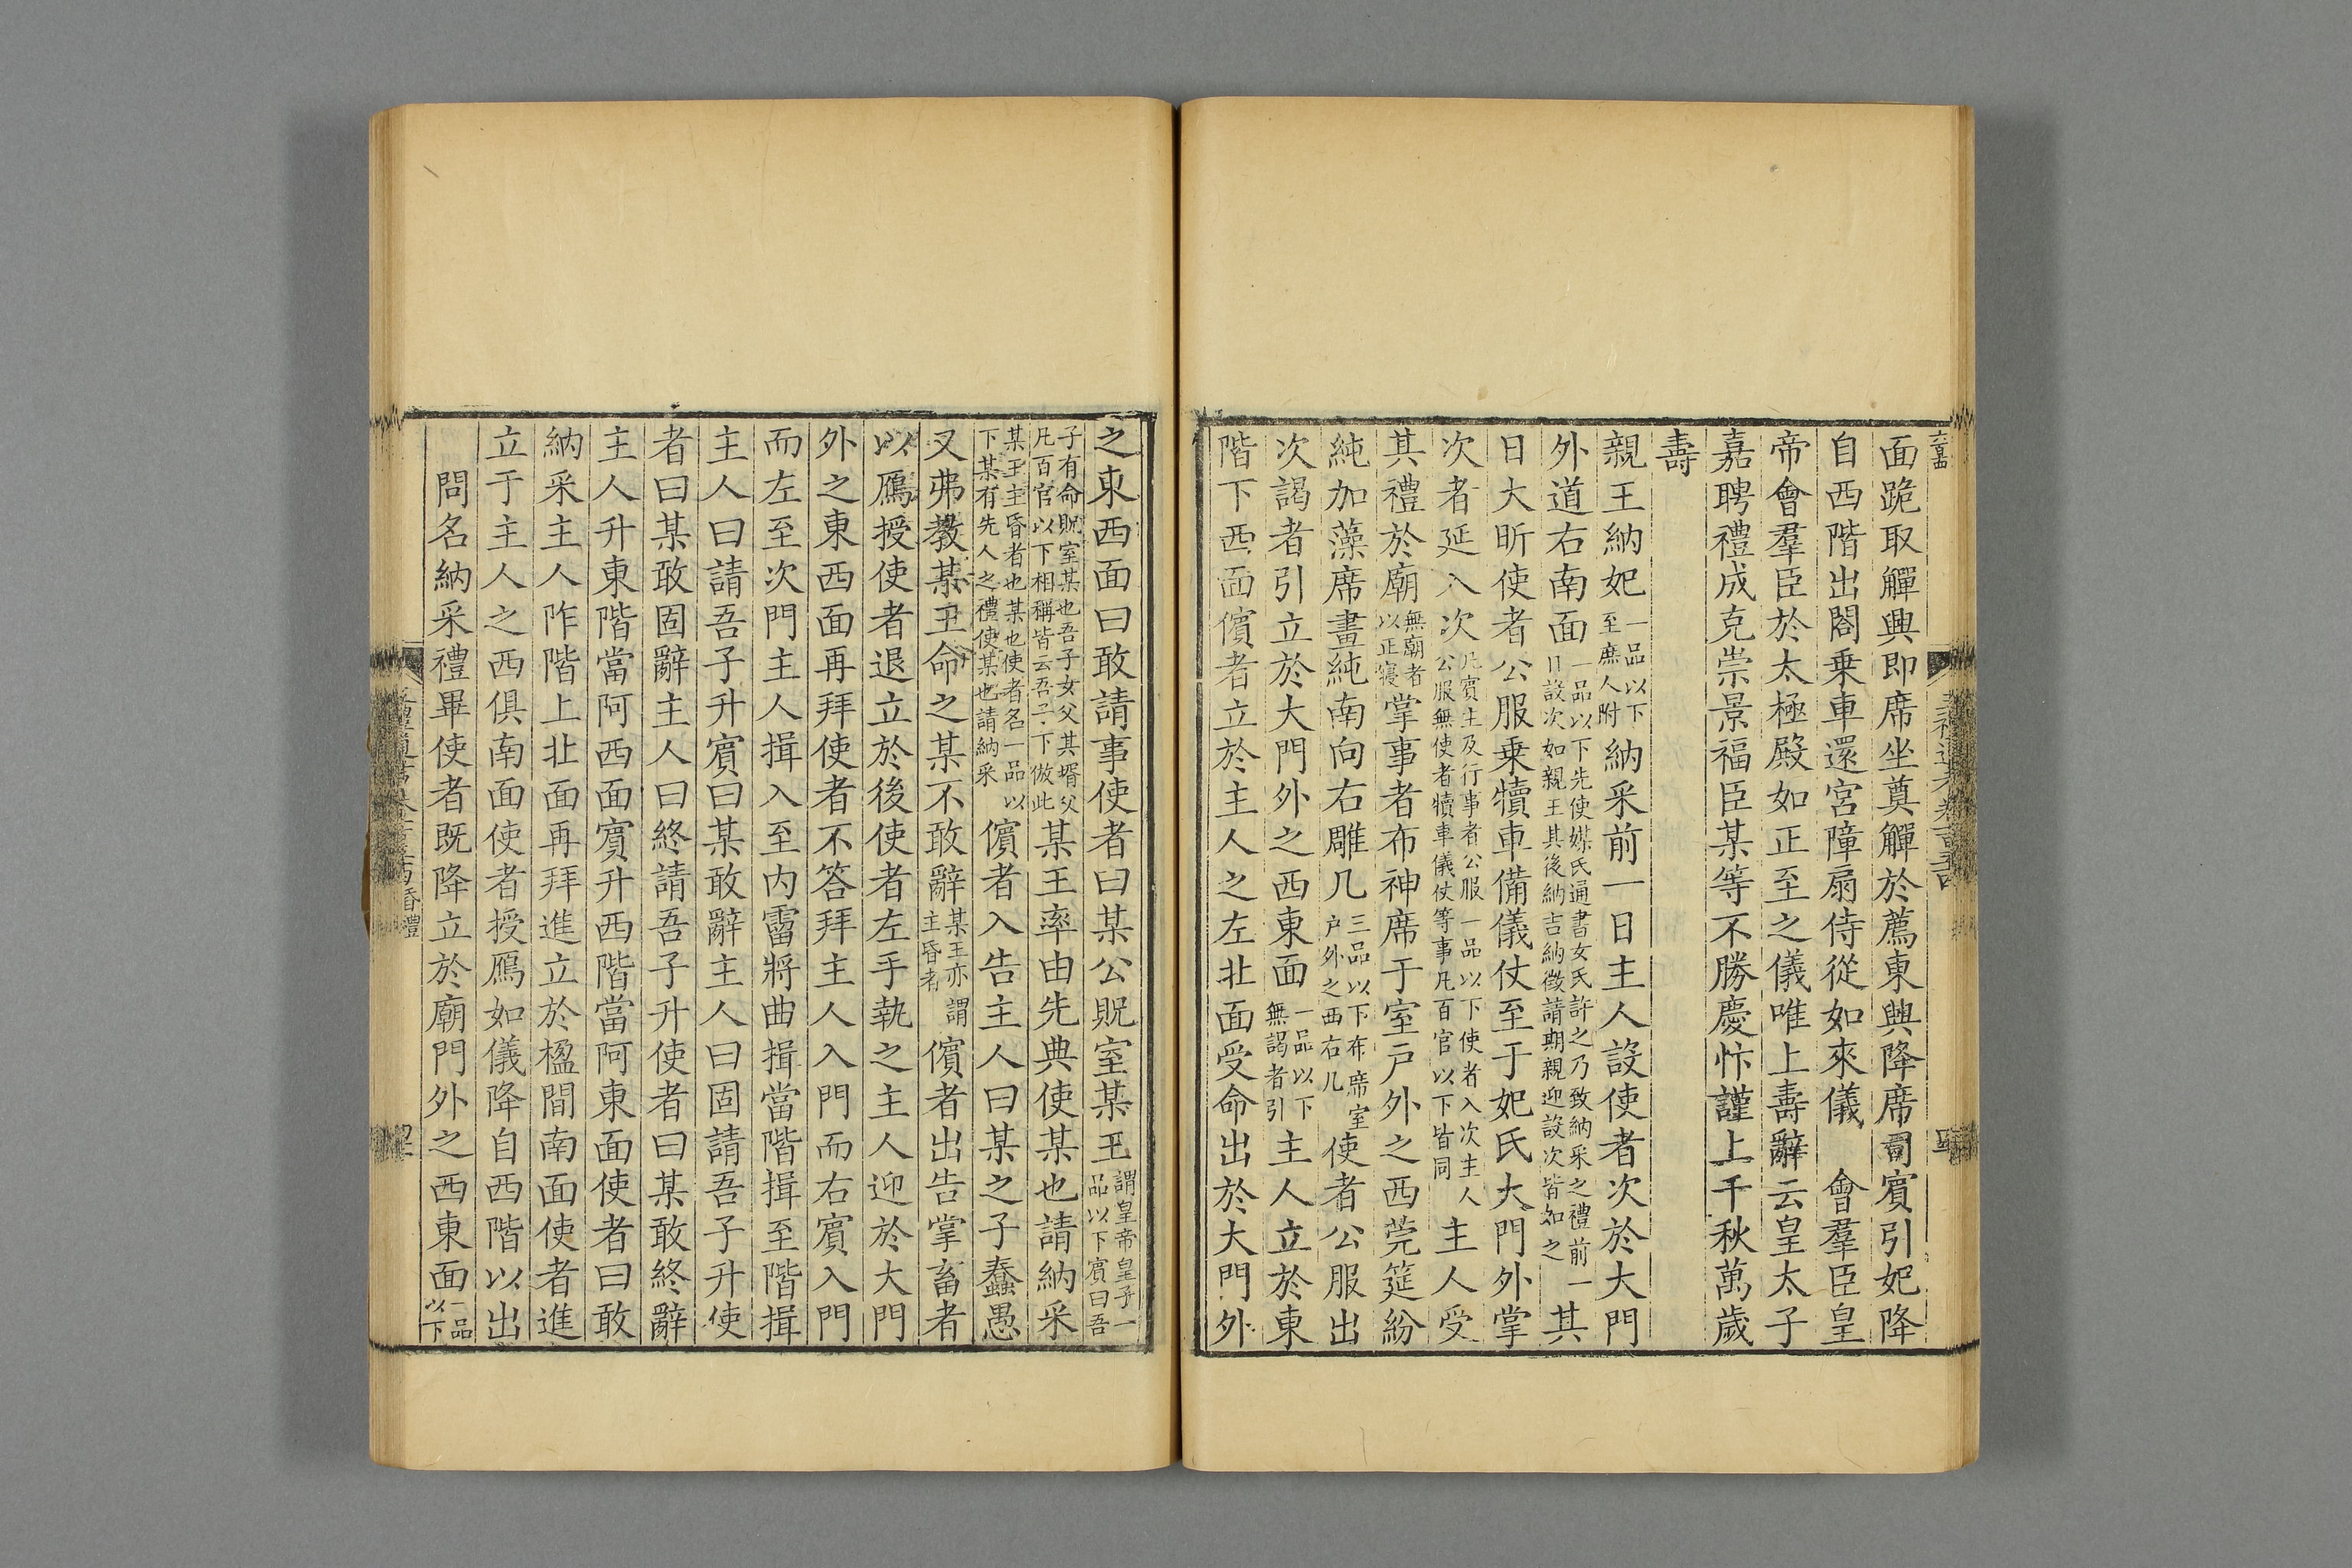 面跪取觶興即席坐奠觶於薦東興降席司賓引妃降
自西階出閤乗車還宮障扇侍從如來儀　會羣臣皇
帝會羣臣於太極殿如正至之儀唯上壽辭云皇太子
嘉聘禮成克崇景福臣某等不勝慶忭謹上千秋萬歲
壽
親王納妃一品以下至庶人附納采前一日主人設使者次於大門
外道右南面一品以下先使媒氏通書女氏許之乃致納采之禮前一日設次如親王其後納吉納徵請期親迎設次皆如之其
日大昕使者公服乗犢車備儀仗至于妃氏大門外掌
次者延入次凡賓主及行事者公服一品以下使者入次主人公服無使者犢車儀仗等事凡百官以下皆同主人受
其禮於廟無廟者以正寢掌事者布神席于室戶外之西莞筵紛
純加藻席畫純南向右雕几三品以下布席室戶外之西右几使者公服出
次謁者引立於大門外之西東面一品以下無謁者引主人立於東
階下西面儐者立於主人之左北面受命出於大門外
之東西面曰敢請事使者曰某公貺室某王謂皇帝皇子一品以下賓曰吾
子有命貺室某也吾子女父其壻父凡百官以下相稱皆云吾子下倣此某王率由先典使某也請納采
某王主昏者也某也使者名一品以下某有先人之禮使某也請納采儐者入告主人曰某之子蠢愚
又弗教某王命之某不敢辭某王亦謂主昏者儐者出告掌畜者
以鴈授使者退立於後使者左手執之主人迎於大門
外之東西面再拜使者不答拜主人入門而右賓入門
而左至次門主人揖入至内霤將曲揖當階揖至階揖
主人曰請吾子升賓曰某敢辭主人曰固請吾子升使
者曰某敢固辭主人曰終請吾子升使者曰某敢終辭
主人升東階當阿西面賓升西階當阿東面使者曰敢
納采主人阼階上北面再拜進立於楹間南面使者進
立于主人之西俱南面使者授鴈如儀降自西階以出
問名納采禮畢使者既降立於廟門外之西東面一品以下